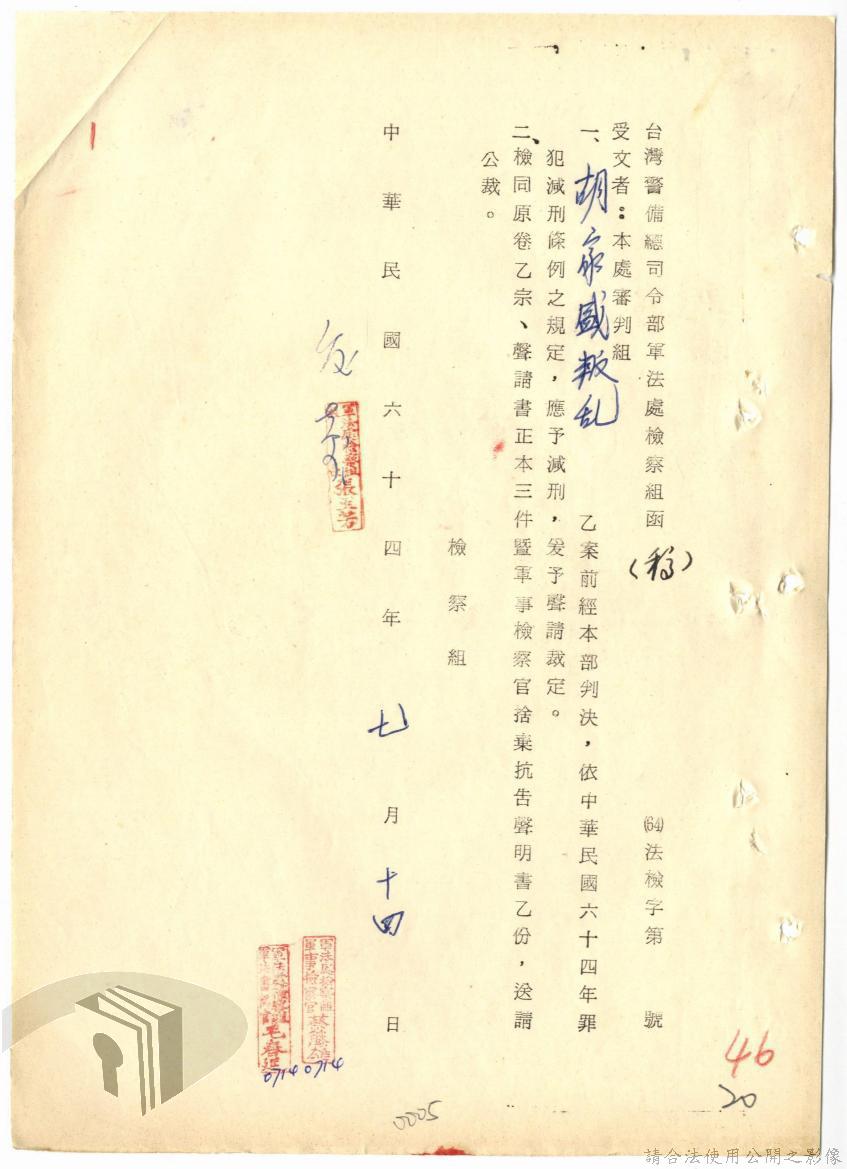 台灣警備總司令部軍法處檢察組函（稿） (64)法檢字第　　號
受文者：本處審判組
一、胡家盛叛乱　　乙案前經本部判決，依中華民國六十四年罪
犯減刑條例之規定，應予減刑，爰予聲請裁定。
二、檢同原卷乙宗、聲請書正本三件暨軍事檢察官捨棄抗告聲明書乙份，送請
公裁。
檢察組
中華民國六十四年七月十四日
發
張玉芳
0714
毛春
0714
0005
46
20
請合法使用公開之影像